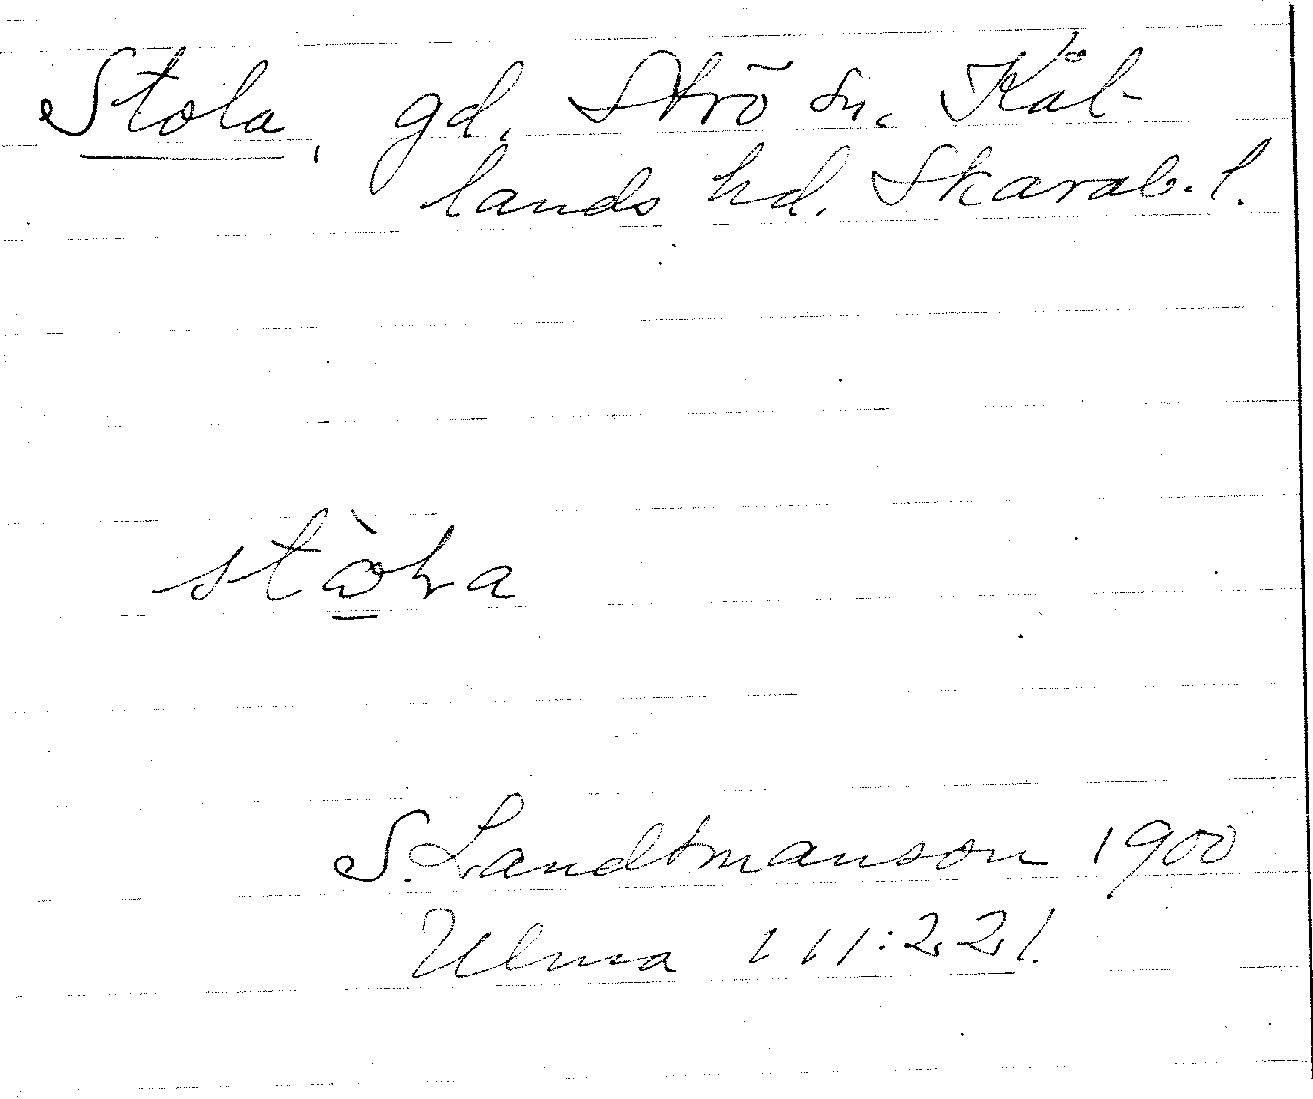 Stola, gd. Strö sn. Kål-
lands hd. Skarab. l.
S. Landtmanson 1900
Ulma 111:221.